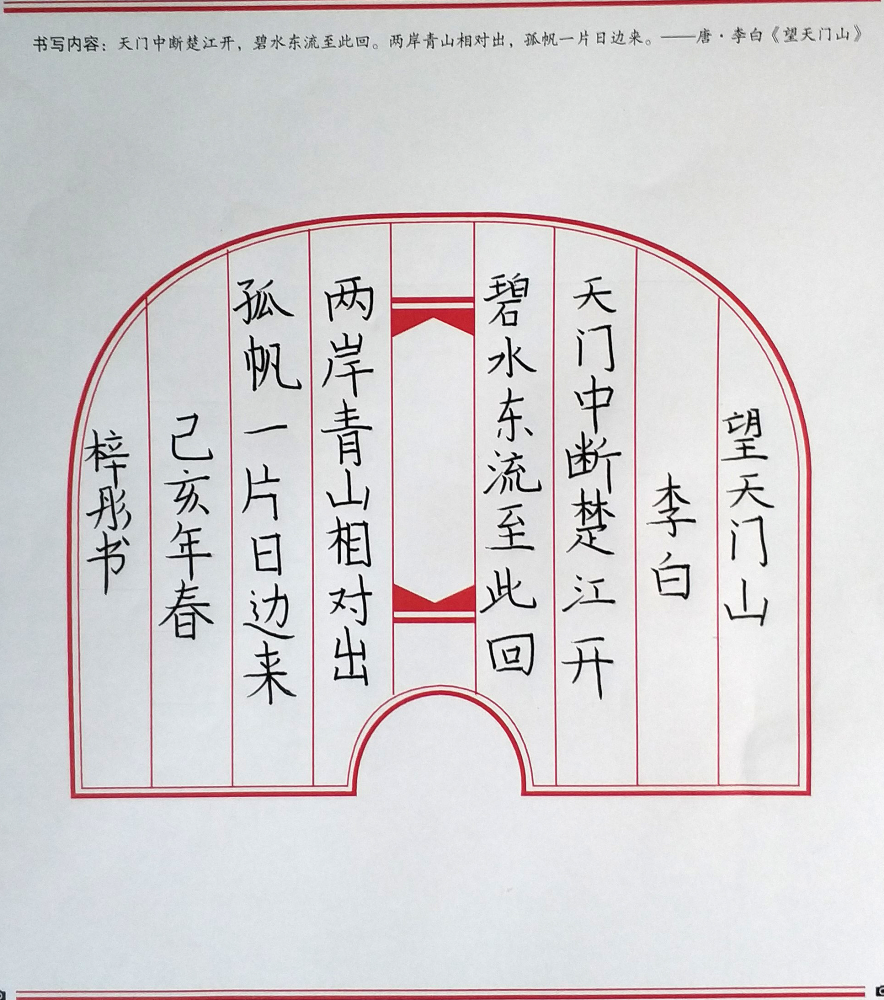 书写内容：天门中断楚江开，碧水东流至此回。两岸青山相对出，孤帆一片日边来。——唐·李白《望天门山》
望天门山
李白
天门中断楚江开
碧水东流至此回
两岸青山相对出
孤帆一片日边来
己亥年春
梓彤书